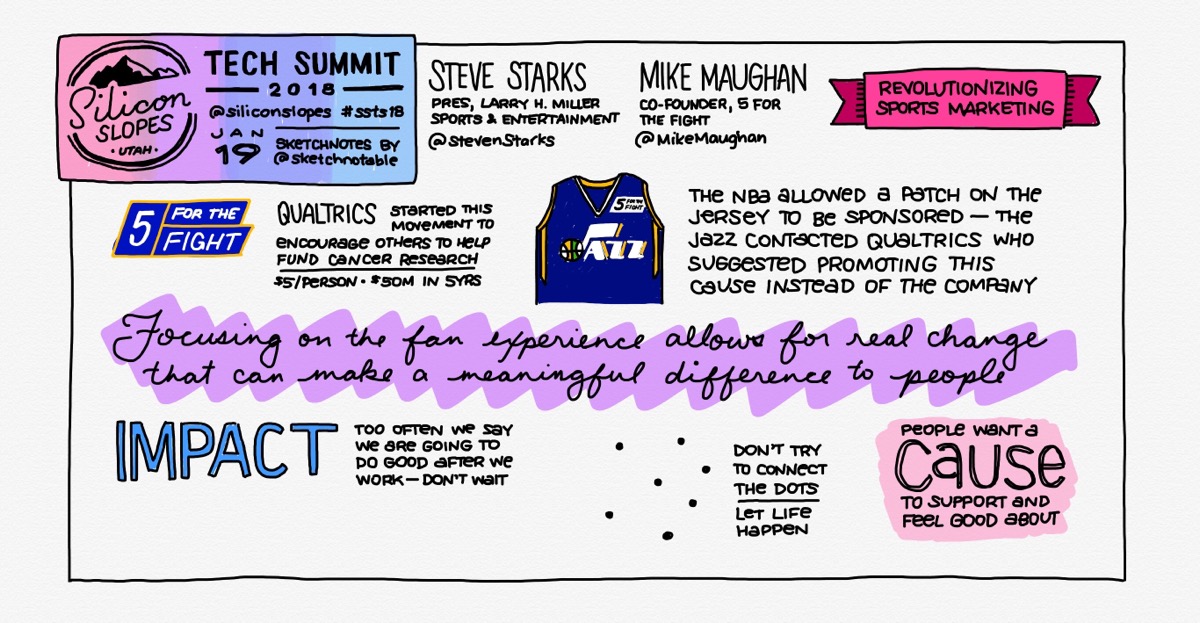 Silicon
SLOPES
• UTAH •
TECH SUMMIT
2018
@siliconslopes #ssts18
JAN
19
SKETCHNOTES BY
@sketchnotable
STEVE STARKS
PRES, LARRY H. MILLER
SPORTS & ENTERTAINMENT
@StevenStarks
MIKE MAUGHAN
CO-FOUNDER, 5 FOR
THE FIGHT
@MikeMaughan
REVOLUTIONIZING
SPORTS MARKETING
5 FOR THE
FIGHT
QUALTRICS STARTED THIS
MOVEMENT TO
ENCOURAGE OTHERS TO HELP
FUND CANCER RESEARCH
$5/PERSON • $50M IN 5YRS
5 FOR THE
FIGHT
JAZZ
THE NBA ALLOWED A PATCH ON THE
JERSEY TO BE SPONSORED — THE
JAZZ CONTACTED QUALTRICS WHO
SUGGESTED PROMOTING THIS
CAUSE INSTEAD OF THE COMPANY
Focusing on the fan experience allows for real change
that can make a meaningful difference to people
IMPACT
TOO OFTEN WE SAY
WE ARE GOING TO
DO GOOD AFTER WE
WORK — DON'T WAIT
DON'T TRY
TO CONNECT
THE DOTS
LET LIFE
HAPPEN
PEOPLE WANT A
CAUSE
TO SUPPORT AND
FEEL GOOD ABOUT